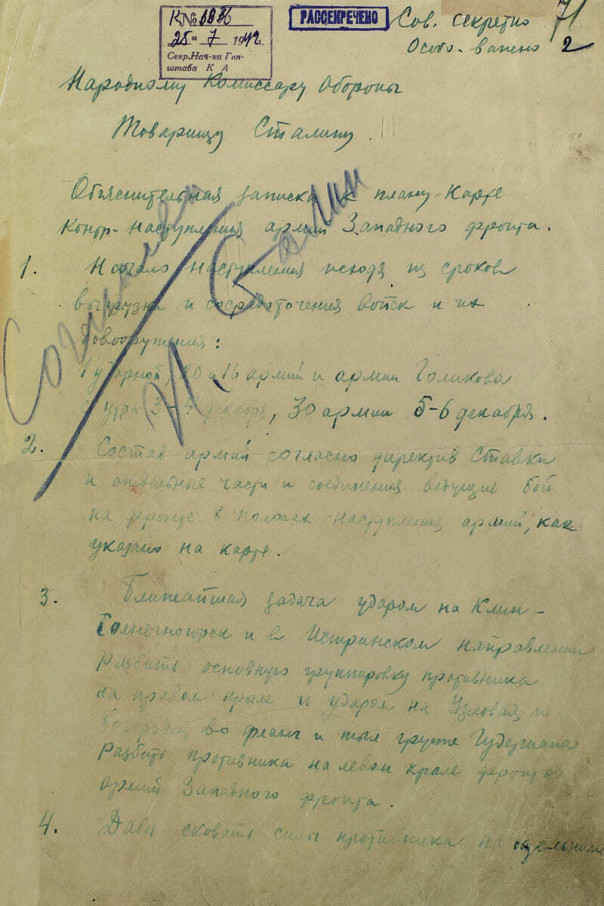 К №
25 - 7 1942.
Секр.Нач-ка Ген-
штаба К А
РАССЕКРЕЧЕНО
Сов. секретно
Особо-важно
71
2
Народному Комиссару Обороны
Товарищу Сталину.
Объяснительная записка к плану-карте
контр-наступления армий Западного фронта.
1. Начало наступления исходя из сроков
выгрузки и сосредоточения войск и их
довооружения:
1 ударной 20 и 16 армий и армии Голикова
с утра 3-4 декабря, 30 армии 5-6 декабря.
Согласен
И. Сталин
2. Состав армий согласно директив Ставки
и отдельные части и соединения ведущие бой
на фронте в полосах наступления армий, как
указано на карте.
3. Ближайшая задача ударом на Клин-
Солнечногорск и в Истринском направлении
разбить основную группировку противника
на правом крыле и ударом на Узловая и
Богородицк во фланг и тыл группе Гудериана
разбить противника на левом крыле фронта
армий Западного фронта.
4. Дабы сковать силы противника на остальном